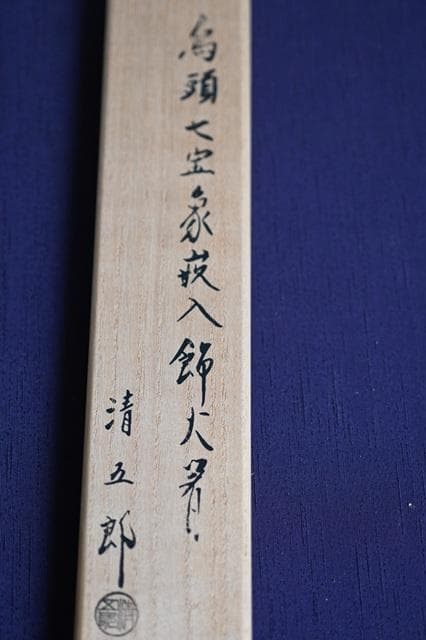 鳥頭七宝象嵌入飾火箸
清五郎